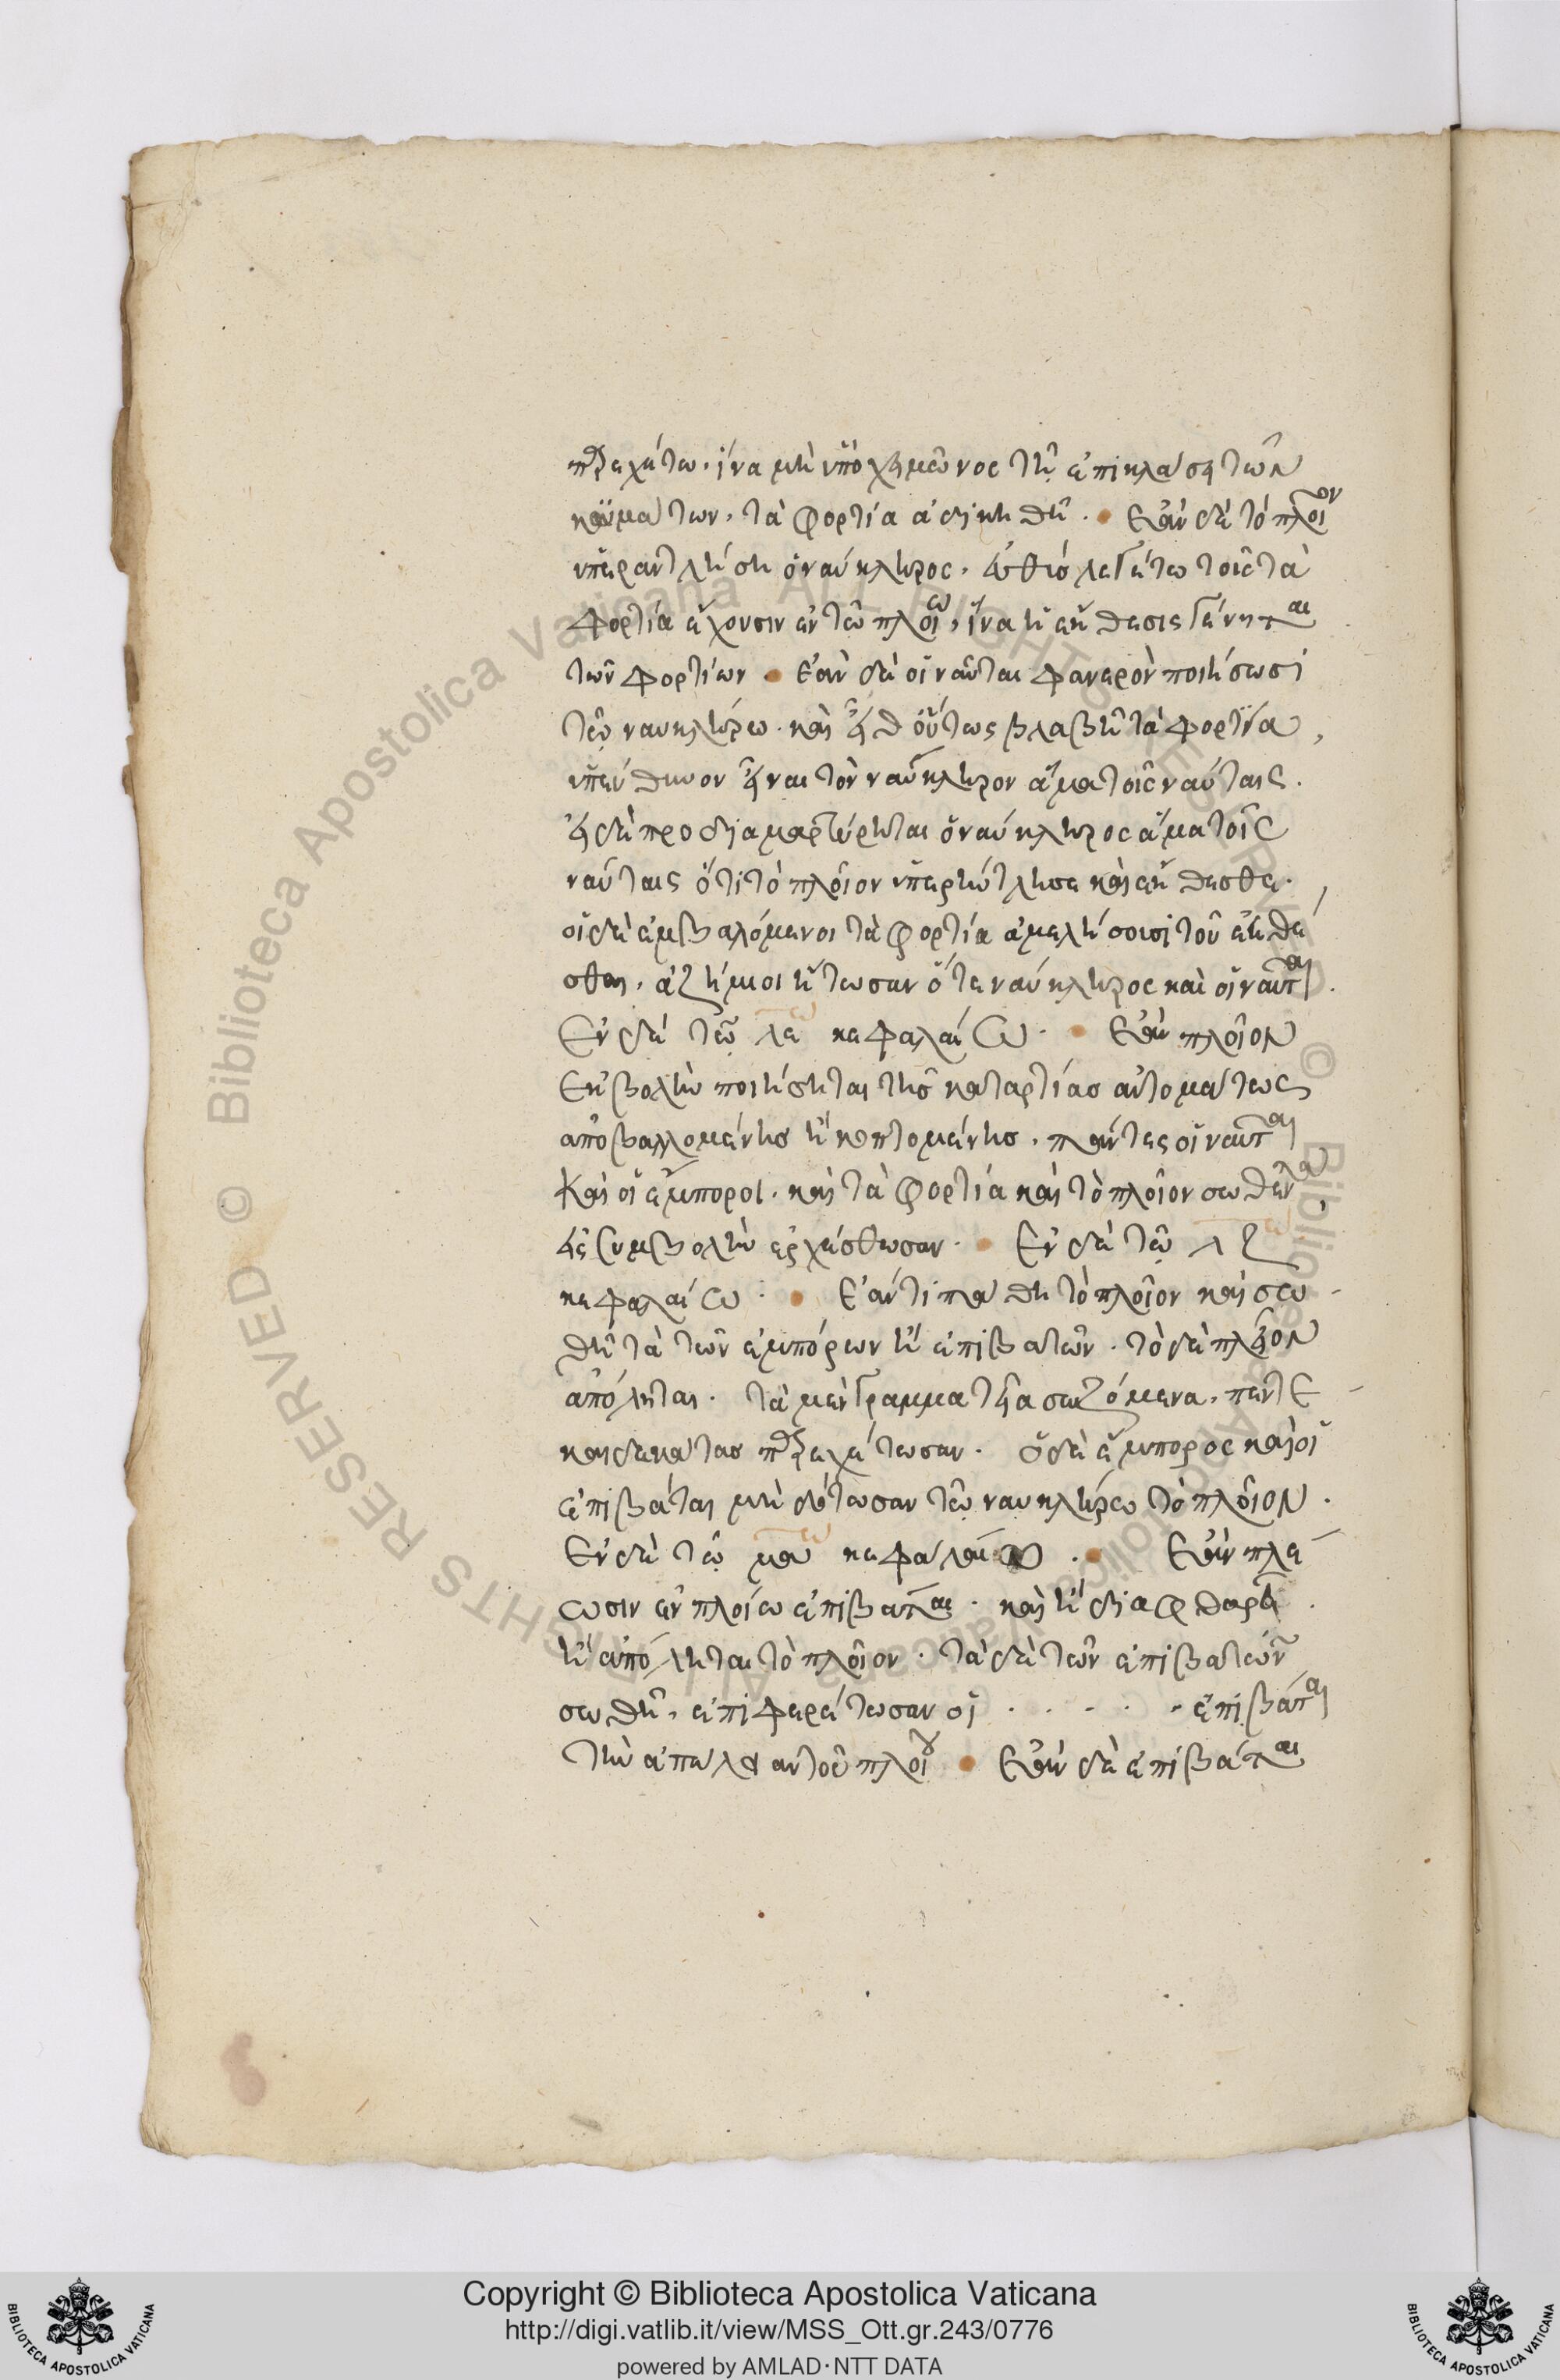 παρεχέτω. ἵνα μὴ ὑπὸ χειμῶνος τῆ ἐπικλάσει τῶν
κυμάτων, τὰ φορτία ἀδικηθῆ. Ἐὰν δὲ τὸ πλοῖον
ὑπεραντλήση ὁ ναύκληρος, εὐθὺς λεγέτω τοῖς τὰ
φορτία ἔχουσιν ἐν τῶ πλοίω, ἵνα ἡ ἔκθεσις γένηται
τῶν φορτίων Ἐὰν δὲ οἱ ναῦται φανερὸν ποιήσωσι
τῶ ναυκλήρω. καὶ εἶθ οὕτως βλαβῆ τὰ φορτία,
ὑπεύθυνον εἶναι τὸν ναύκληρον ἅμα τοῖς ναύταις.
εἰ δὲ προδιαμαρτύρηται ὁ ναύκληρος ἅμα τοῖς
ναύταις ὅτι τὸ πλοῖον ὑπερήντλησε καὶ ἔκθεσθε.
οἱ δὲ ἐμβαλόμενοι τὰ φορτία ἀμελήσουσι τοῦ ἐκθέ
σθαι, ἀζήμιοι ἤτωσαν ὅ τε ναύκληρος καὶ οἱ ναῦται.
Ἐν δὲ τῶ λε κεφαλαίω. Ἐὰν πλοῖον
ἐκβολὴν ποιήσηται τῆς καταρτίας αὐτομάτως
ἀποβαλλομένης ἢ κοπτομένης, πάντες οἱ ναῦται
καὶ οἱ ἔμποροι. καὶ τὰ φορτία καὶ τὸ πλοῖον σωθέντα,
εἰς συμβολὴν ἐρχέσθωσαν. Ἐν δὲ τῶ λζ
κεφαλαίω. Ἐάν τι πάθη τὸ πλοῖον καὶ σω
θῆ τὰ τῶν ἐμπόρων ἢ ἐπιβατῶν. τὸ δὲ πλοῖον
ἀπόληται. τὰ μὲν γραμματεῖα σωζόμενα, πεντε
καιδεκάτας παρεχέτωσαν. ὁ δὲ ἔμπορος καὶ οἱ
ἐπιβάται μὴ δότωσαν τῶ ναυκλήρω τὸ πλοῖον.
Ἐν δὲ τῶ μα κεφαλαίω. Ἐὰν πλέ
ωσιν ἐν πλοίω ἐπιβάται. καὶ ἢ διαφθαρῆ.
ἢ ἀπόληται τὸ πλοῖον. τὰ δὲ τῶν ἐπιβατῶν
σωθῆ, ἐπιφερέτωσαν οἱ . . - . - ἐπιβάται
τὴν ἀπώλειαν τοῦ πλοίου Ἐὰν δὲ ἐπιβάται
Copyright © Biblioteca Apostolica Vaticana
http://digi.vatlib.it/view/MSS_Ott.gr.243/0776
powered by AMLAD·NTT DATA